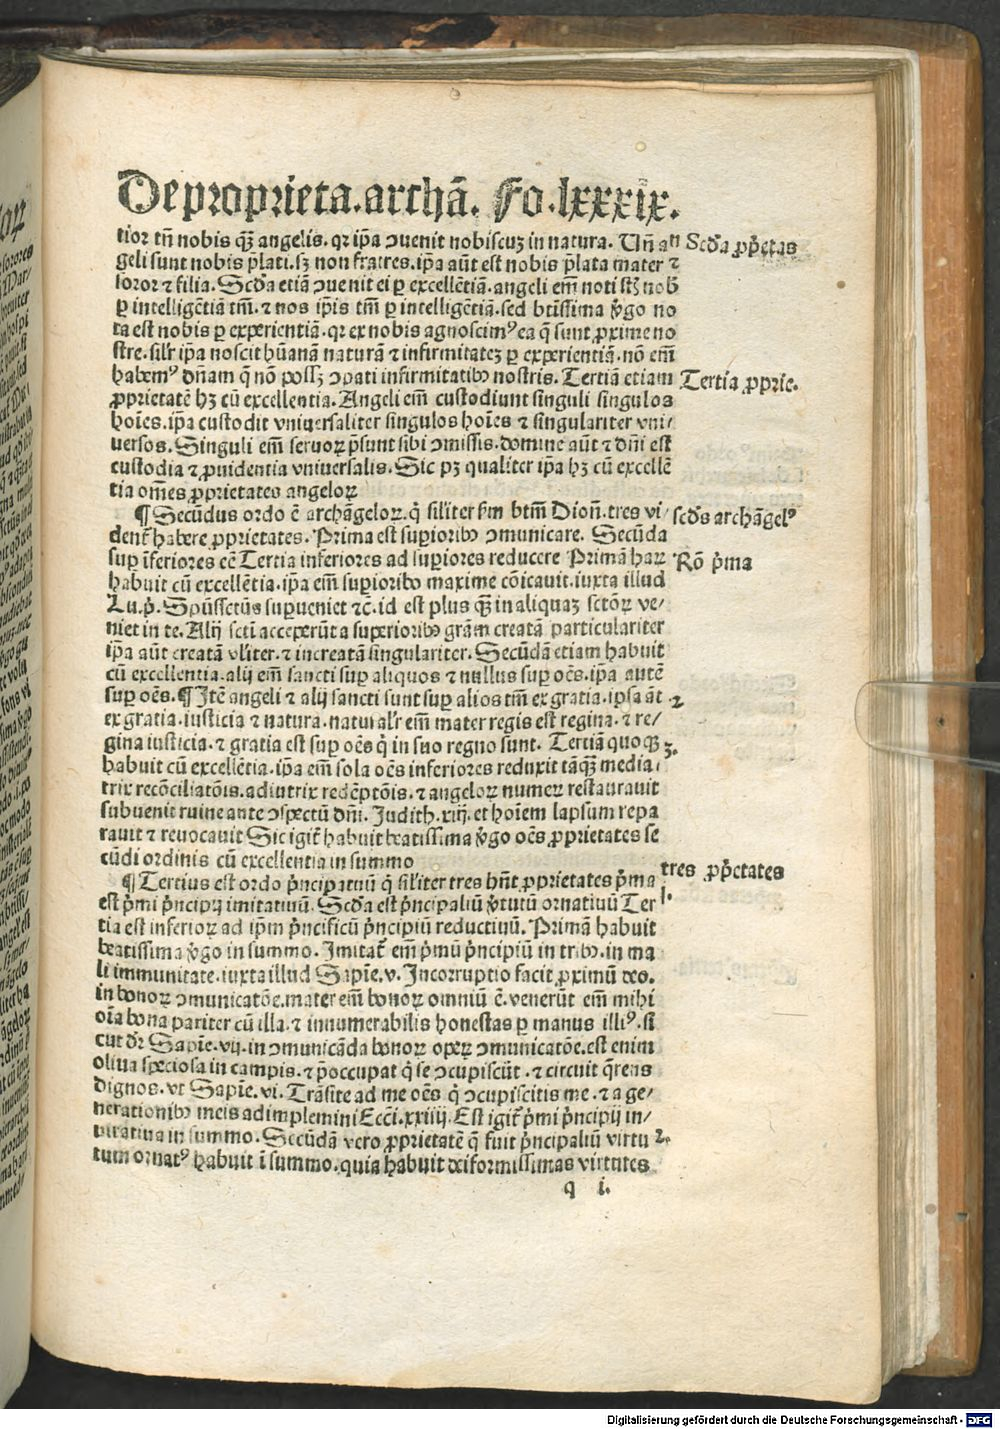 De proprieta. archā. Fo. lxxxix.
tior tn̄ nobis qꝫ angelis. qꝛ ip̄a ↄuenit nobiscuꝫ in natura. Un̄ an
Scd̄a ꝓp̄etas
geli sunt nobis p̄lati. sꝫ non fratres. ip̄a aūt est nobis p̄lata mater ⁊
soror ⁊ filia. Scd̄a etiā ↄuenit ei ꝑ excellētiā. angeli em̄ noti sūt nob̄
ꝑ intelligētiā tm̄. ⁊ nos ip̄is tm̄ ꝑ intelligētiā. sed btīssima v̓go no
ta est nobis ꝑ experientiā. qꝛ ex nobis agnoscim⁹ ea q̄ sunt ꝓxime no
stre. sil'r ip̄a noscit hūanā naturā ⁊ infirmitateꝫ ꝑ experientiā. nō em̄
habem⁹ dn̄am q̄ nō possꝫ ↄpati infirmitatibꝰ nostris. Tertiā etiam
Tertia ꝓprie.
ꝓprietatē hꝫ cū excellentia. Angeli em̄ custodiunt singuli singulos
hoīes. ip̄a custodit vniuersaliter singulos hoīes ⁊ singulariter vni⸗
uersos. Singuli em̄ seruoꝝ p̄sunt sibi ↄmissis. domine aūt ⁊ dn̄i est
custodia ⁊ ꝓuidentia vniuersalis. Sic pꝫ qualiter ip̄a hꝫ cū excellē
tia om̄es ꝓprietates angeloꝝ
¶ Secūdus ordo ē archāgeloꝝ. q̓ sil'iter ẜm btm̄ Dion̄. tres vi⸗
scd̓s archāgel⁹
dent̄ habere ꝓprietates. Prima est suꝑioribꝰ ↄmunicare. Secūda
suꝑ īferiores eē Tertia inferiores ad suꝑiores reducere Primā haꝝ
Rō p̓ma
habuit cū excellētia. ip̄a em̄ suꝑioribꝰ maxime cōicauit. iuxta illud
Lu. p̓. Spūssctūs suꝑueniet ⁊c̄. id est plus qꝫ in aliquaꝫ sctōꝝ ve⸗
niet in te. Alij scti acceperūt a superioribꝰ grām creatā particulariter
ip̄a aūt creatā vl'iter. ⁊ increatā singulariter. Secūdā etiam habuit
cū excellentia. alij em̄ sancti suꝑ aliquos ⁊ nullus suꝑ oēs. ip̄a autē
suꝑ oēs. ¶ Itē angeli ⁊ alij sancti sunt suꝑ alios tm̄ ex gratia. ip̄sa āt
2
ex gratia. iusticia ⁊ natura. natural'r em̄ mater regis est regina. ⁊ re⸗
gina iusticia. ⁊ gratia est suꝑ oēs q̓ in suo regno sunt. Tertiā quoqꝫ
3.
habuit cū excellētia. ip̄a em̄ sola oēs inferiores reduxit tāqꝫ media⸗
trix recōciliatōis. adiutrix redēptōis. ⁊ angeloꝝ numeꝝ restaurauit
subuenit ruine ante ↄspectū dn̄i. Judith. xiij. et hoīem lapsum repa
rauit ⁊ reuocauit Sic igit̄ habuit beatissima v̓go oēs ꝓprietates se
cūdi ordinis cū excellentia in summo
¶ Tertius est ordo p̓ncipatuū q̓ sil'iter tres hn̄t ꝓprietates p̓ma
tres ꝓp̓etates
est p̓mi p̓ncipij imitatiuū. Scd̄a est p̓ncipaliū v̓tutū ornatiuū Ter
1.
tia est inferioꝝ ad ip̄m p̓ncificū p̓ncipiū reductiuū. Primā habuit
beatissima v̓go in summo. Imitat̄ em̄ p̓mū p̓ncipiū in tribꝰ. in ma
li immunitate. iuxta illud Sapīe. v. Incorruptio facit ꝓximū deo.
in bonoꝝ ↄmunicatōe. mater em̄ bonoꝝ omniū ē. venerūt em̄ mihi
oīa bona pariter cū illa. ⁊ innumerabilis honestas ꝑ manus illi⁹. si
cut dr̄ Sapīe. vij. in ↄmunicāda bonoꝝ opeꝝ ↄmunicatōe. est enim
oliua speciosa in campis. ⁊ p̄occupat q̓ se ↄcupiscūt. ⁊ circuit q̄rens
dignos. vt Sapīe. vi. Trāsite ad me oēs q̓ ↄcupiscitis me. ⁊ a ge⸗
nerationibꝰ meis adimplemini Ecc̄i. xxiiij. Est igit̄ p̓mi p̓ncipij in⸗
uitatiua in summo. Secūdā vero ꝓprietatē q̄ fuit p̓ncipaliū virtu
2.
tum ornat⁹ habuit ī summo. quia habuit deiformissimas virtutes
q i.
Digitalisierung gefördert durch die Deutsche Forschungsgemeinschaft - DFG